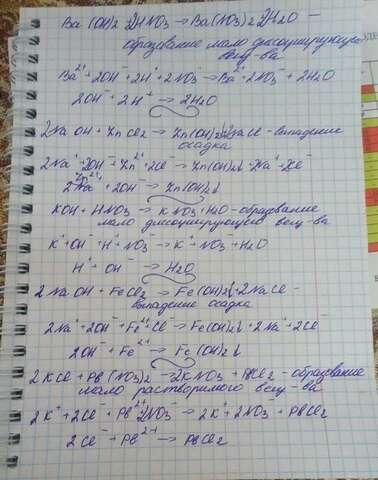 Ba(OH)2 2HNO3 → Ba(NO3)2 2H2O —
образование мало диссоциирующего
вещ-ва
Ba²⁺ + 2OH⁻ + 2H⁺ + 2NO3⁻ → Ba²⁺ + 2NO3⁻ + 2H2O
2OH⁻ + 2H⁺ → 2H2O
2NaOH + ZnCl2 → Zn(OH)2↓ 2NaCl - выпадение
осадка
2Na⁺ + 2OH⁻ + Zn²⁺ + 2Cl⁻ → Zn(OH)2↓ + 2Na⁺ + 2Cl⁻
Zn²⁺ + 2OH⁻ → Zn(OH)2↓
KOH + HNO3 → KNO3 + H2O - образование
мало диссоциирующего вещ-ва
K⁺ + OH⁻ + H⁺ + NO3⁻ → K⁺ + NO3⁻ + H2O
H⁺ + OH⁻ → H2O
2NaOH + FeCl2 → Fe(OH)2↓ + 2NaCl —
выпадение осадка
2Na⁺ + 2OH⁻ + Fe²⁺ + Cl⁻ → Fe(OH)2↓ + 2Na⁺ + 2Cl⁻
2OH⁻ + Fe²⁺ → Fe(OH)2↓
2KCl + Pb(NO3)2 → 2KNO3 + PbCl2 - образование
мало растворимого вещ-ва
2K⁺ + 2Cl⁻ + Pb²⁺ + 2NO3⁻ → 2K⁺ + 2NO3⁻ + PbCl2
2Cl⁻ + Pb²⁺ → PbCl2